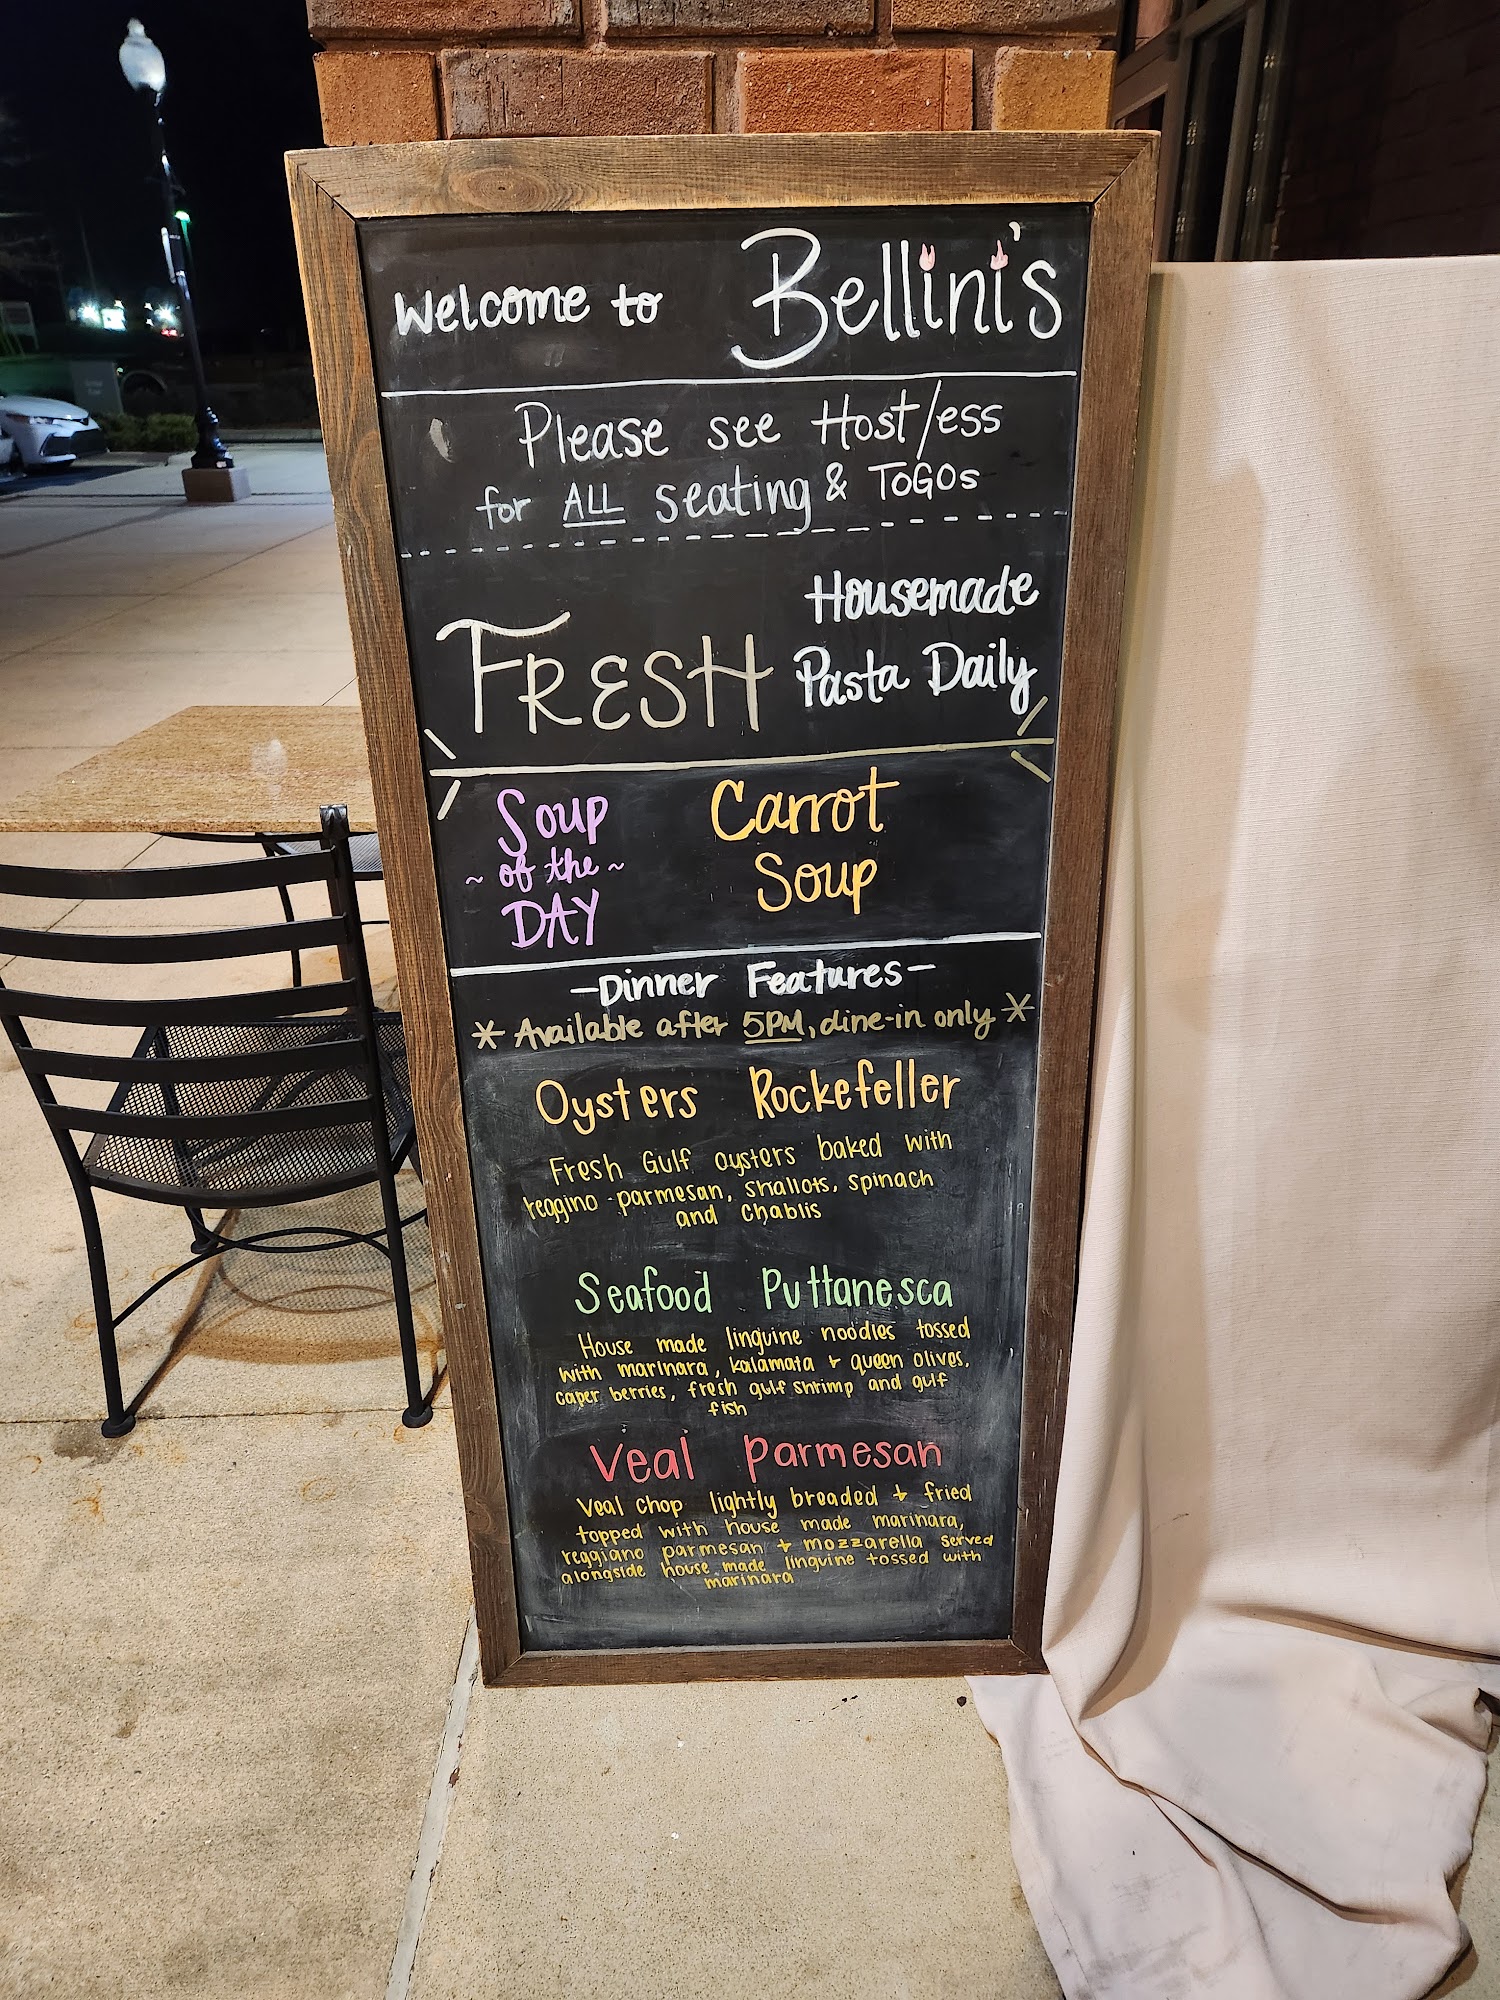 Welcome to Bellini's
Please see Host/ess
for ALL seating & TOGOs
FRESH Housemade
Pasta Daily
Soup
~ of the ~
DAY
Carrot
Soup
-Dinner Features-
* Available after 5PM, dine-in only *
Oysters Rockefeller
Fresh Gulf oysters baked with
reggino-parmesan, shallots, spinach
and Chablis
Seafood Puttanesca
House made linguine noodles tossed
with marinara, kalamata + queen olives,
caper berries, fresh gulf shrimp and gulf
fish
Veal Parmesan
Veal Chop lightly breaded + fried
topped with house made marinara,
reggiano parmesan + mozzarella served
alongside house made linguine tossed with
marinara